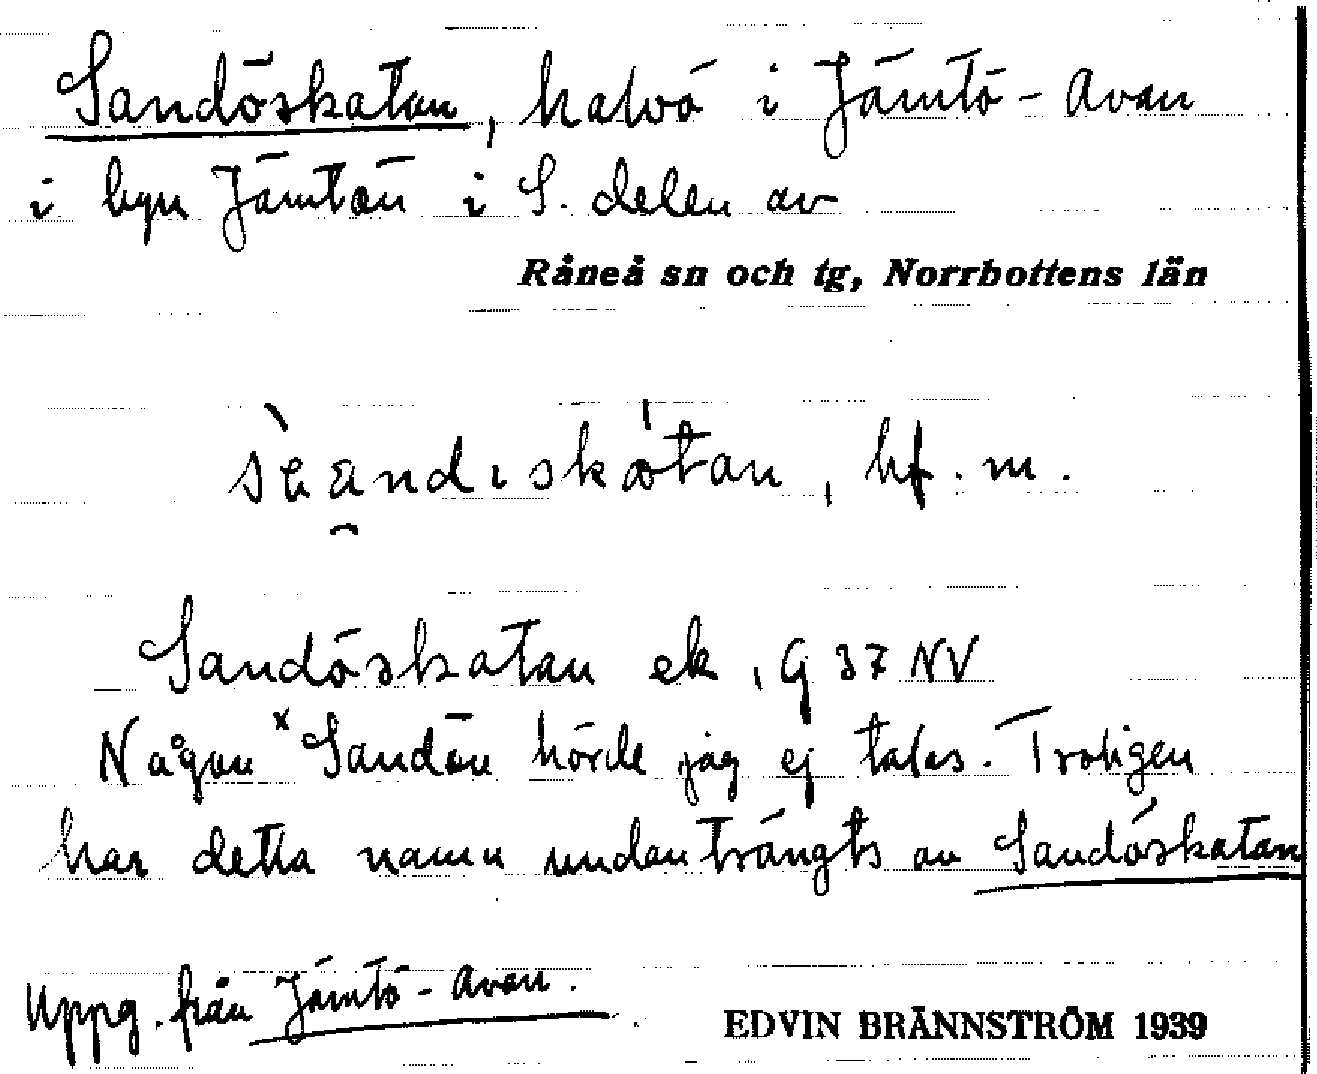 Sandöskatan, halvö i Jämtö-Avan
i byn Jämtön i S. delen av
Råneå sn och tg, Norrbottens län
, bf. m.
Sandöskatan ek, G 37 NV
Någon ˣSandön hörde jag ej talas. Troligen
har detta namn undanträngts av Sandöskatan
Uppg. från Jämtö-Avan.
EDVIN BRÄNNSTRÖM 1939